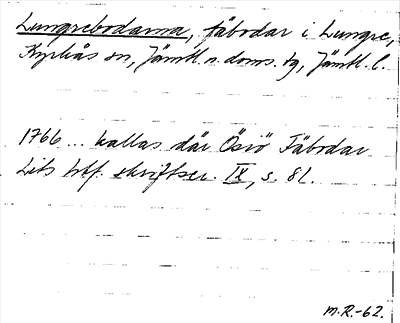 Lungrebodarna, fäbodar i Lungre,
Kyrkås sn, Jämtl. n. doms. tg, Jämtl. l.
1766 ... kallas där Ösiö Fäbodar
Lits htf. skriftser. IX, s. 82.
M.R.-62.